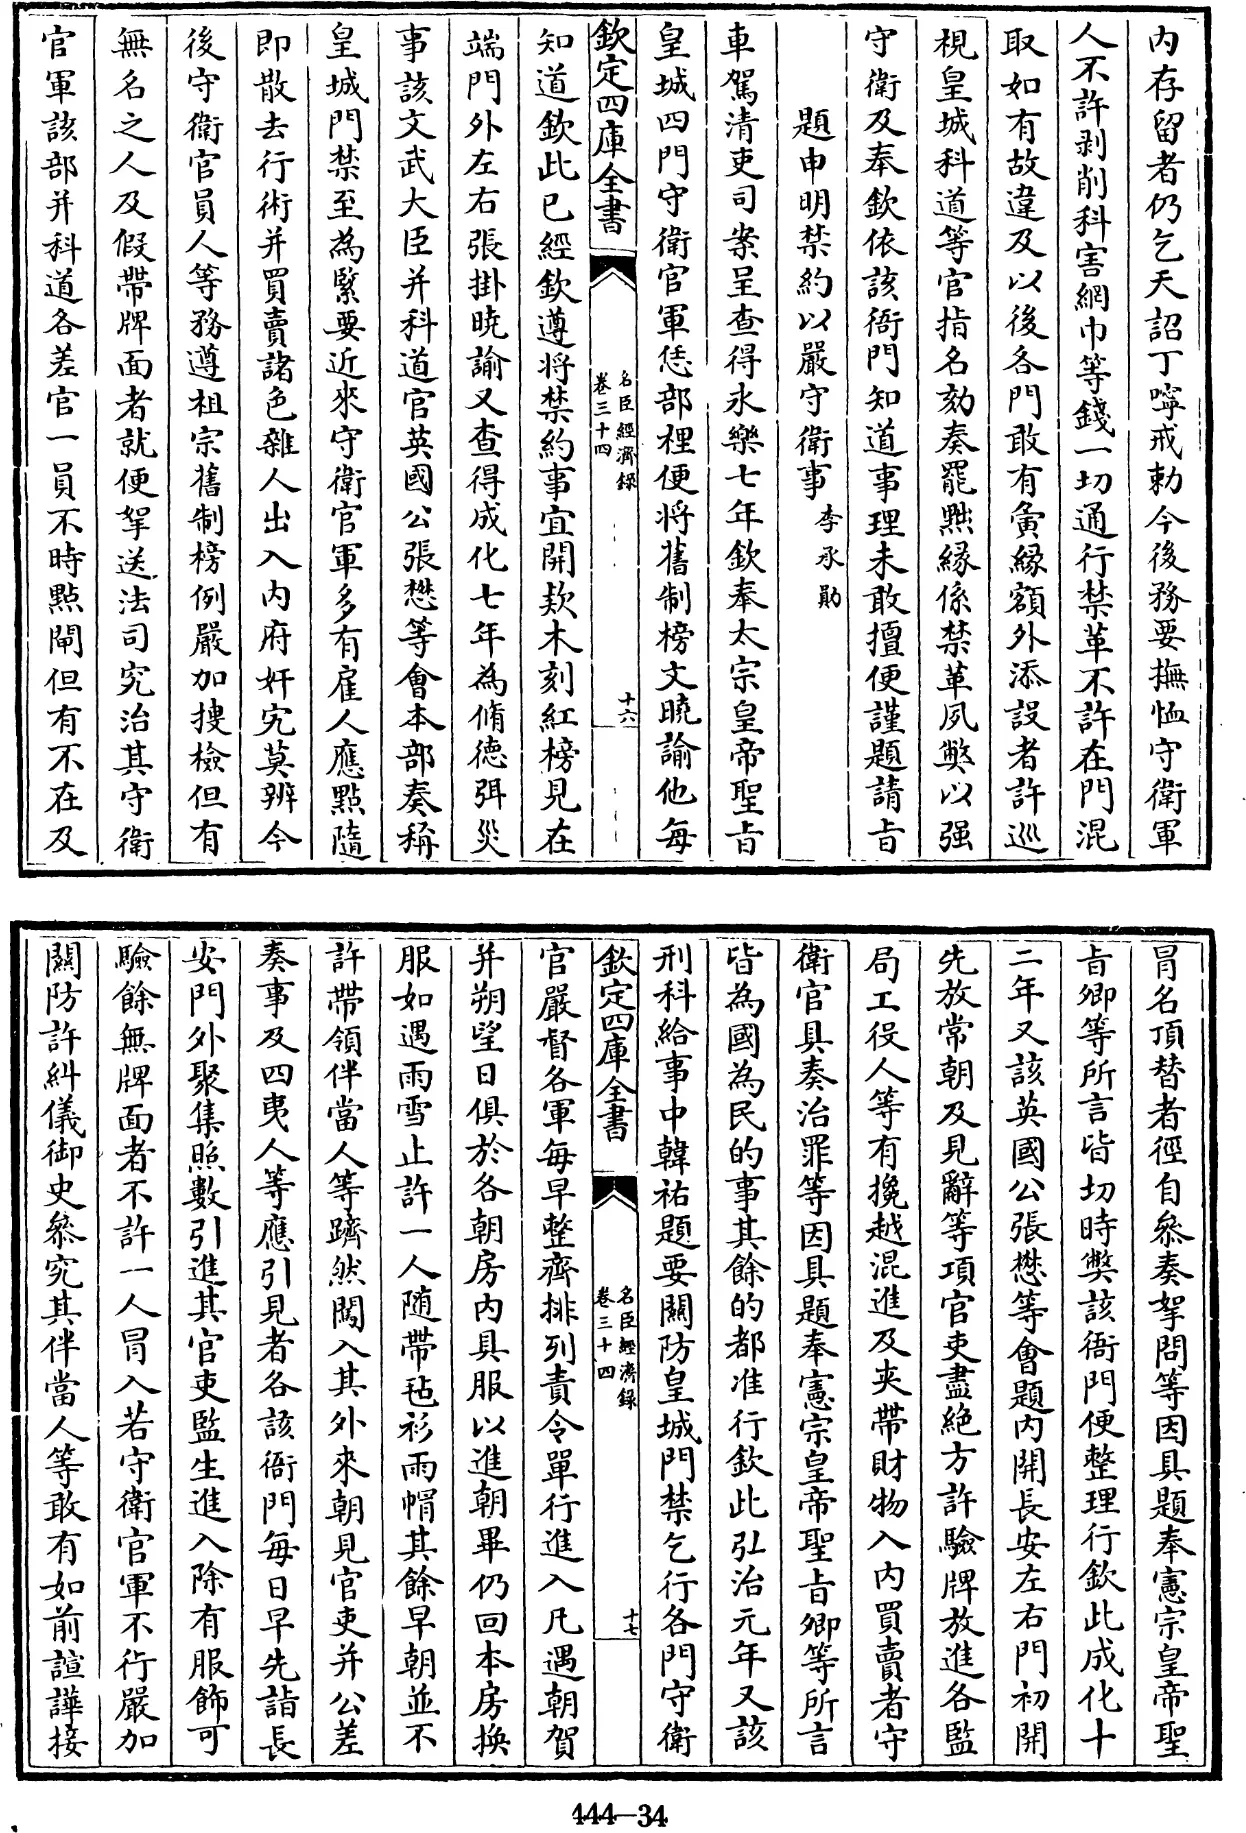 内存留者仍乞天詔丁嚀戒勅今後務要撫恤守衛軍
人不許剥削科害網巾等錢一切通行禁革不許在門混
取如有故違及以後各門敢有夤緣額外添設者許巡
視皇城科道等官指名劾奏罷黜緣係禁革夙弊以强
守衛及奉欽依該衙門知道事理未敢擅便謹題請旨
題申明禁約以嚴守衛事 李承勛
車駕清吏司案呈查得永樂七年欽奉太宗皇帝聖旨
皇城四門守衛官軍恁部裡便將舊制榜文曉諭他每
欽定四庫全書
名臣經濟録
卷三十四
十六
知道欽此已經欽遵将禁約事宜開欵木刻紅榜見在
端門外左右張掛曉諭又查得成化七年為脩德弭災
事該文武大臣并科道官英國公張懋等會本部奏稱
皇城門禁至為緊要近來守衛官軍多有雇人應點隨
即散去行術并買賣諸色雜人出入内府奸宄莫辨今
後守衛官員人等務遵祖宗舊制榜例嚴加搜檢但有
無名之人及假帶牌面者就便拏送法司究治其守衛
官軍該部并科道各差官一員不時點閘但有不在及
冒名頂替者徑自叅奏拏問等因具題奉憲宗皇帝聖
旨卿等所言皆切時弊該衙門便整理行欽此成化十
二年又該英國公張懋等會題内開長安左右門初開
先放常朝及見辭等項官吏盡絶方許驗牌放進各監
局工役人等有攙越混進及夾帶財物入内買賣者守
衛官具奏治罪等因具題奉憲宗皇帝聖旨卿等所言
皆為國為民的事其餘的都准行欽此弘治元年又該
刑科給事中韓祐題要關防皇城門禁乞行各門守衛
欽定四庫全書
名臣經濟録
卷三十四
十七
官嚴督各軍每早整齊排列責令單行進入凡遇朝賀
并朔望日俱於各朝房内具服以進朝畢仍回本房換
服如遇雨雪止許一人随帶毡衫雨帽其餘早朝並不
許帶領伴當人等躋然闖入其外來朝見官吏并公差
奏事及四夷人等應引見者各該衙門每日早先詣長
安門外聚集照數引進其官吏監生進入除有服飾可
驗餘無牌面者不許一人冒入若守衛官軍不行嚴加
關防許糾儀御史叅究其伴當人等敢有如前諠譁接
444—34